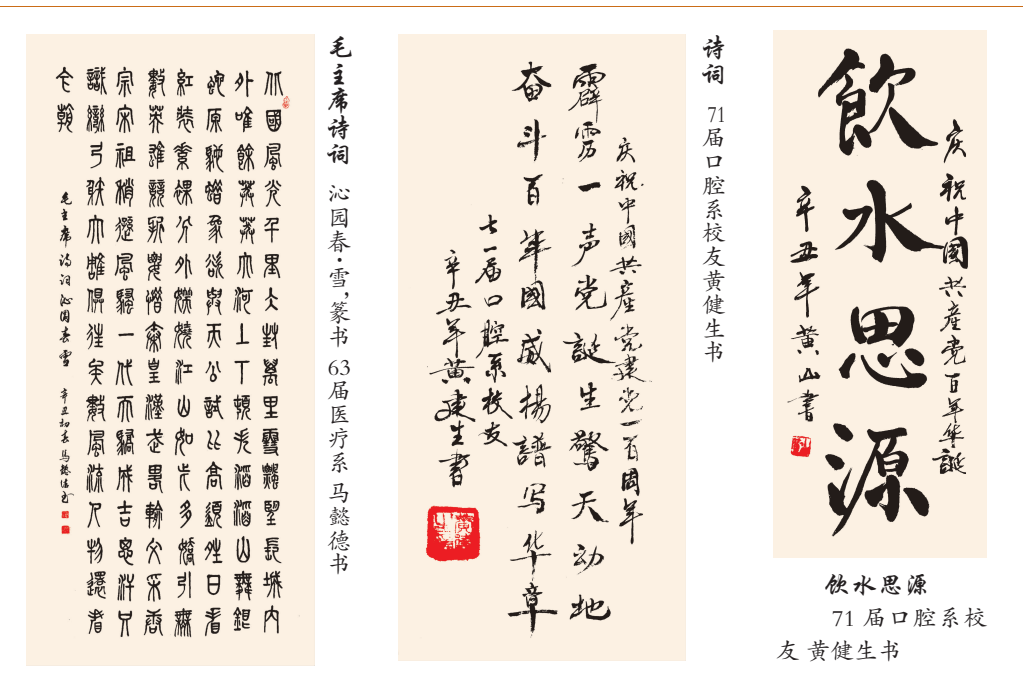 北國風光千里冰封萬里雪飄望長城內
外唯餘莽莽大河上下頓失滔滔山舞銀
蛇原馳蠟象欲與天公試比高須晴日看
紅裝素裹分外妖嬈江山如此多嬌引無
數英雄競折腰惜秦皇漢武略輸文采唐
宗宋祖稍遜風騷一代天驕成吉思汗只
識彎弓射大雕俱往矣數風流人物還看
今朝
毛主席诗词沁园春雪 辛丑初春马懿德书
毛主席诗词 沁园春·雪，篆书 63届医疗系 马懿德书
庆祝中國共產党建党一百周年
霹雳一声党誕生驚天动地
奋斗百年國威揚譜写华章
七一届口腔系校友
辛丑年黄建生書
诗词 71届口腔系校友黄健生书
庆祝中國共產党百年华誕
飲水思源
辛丑年黄山書
饮水思源
71 届口腔系校
友 黄健生书